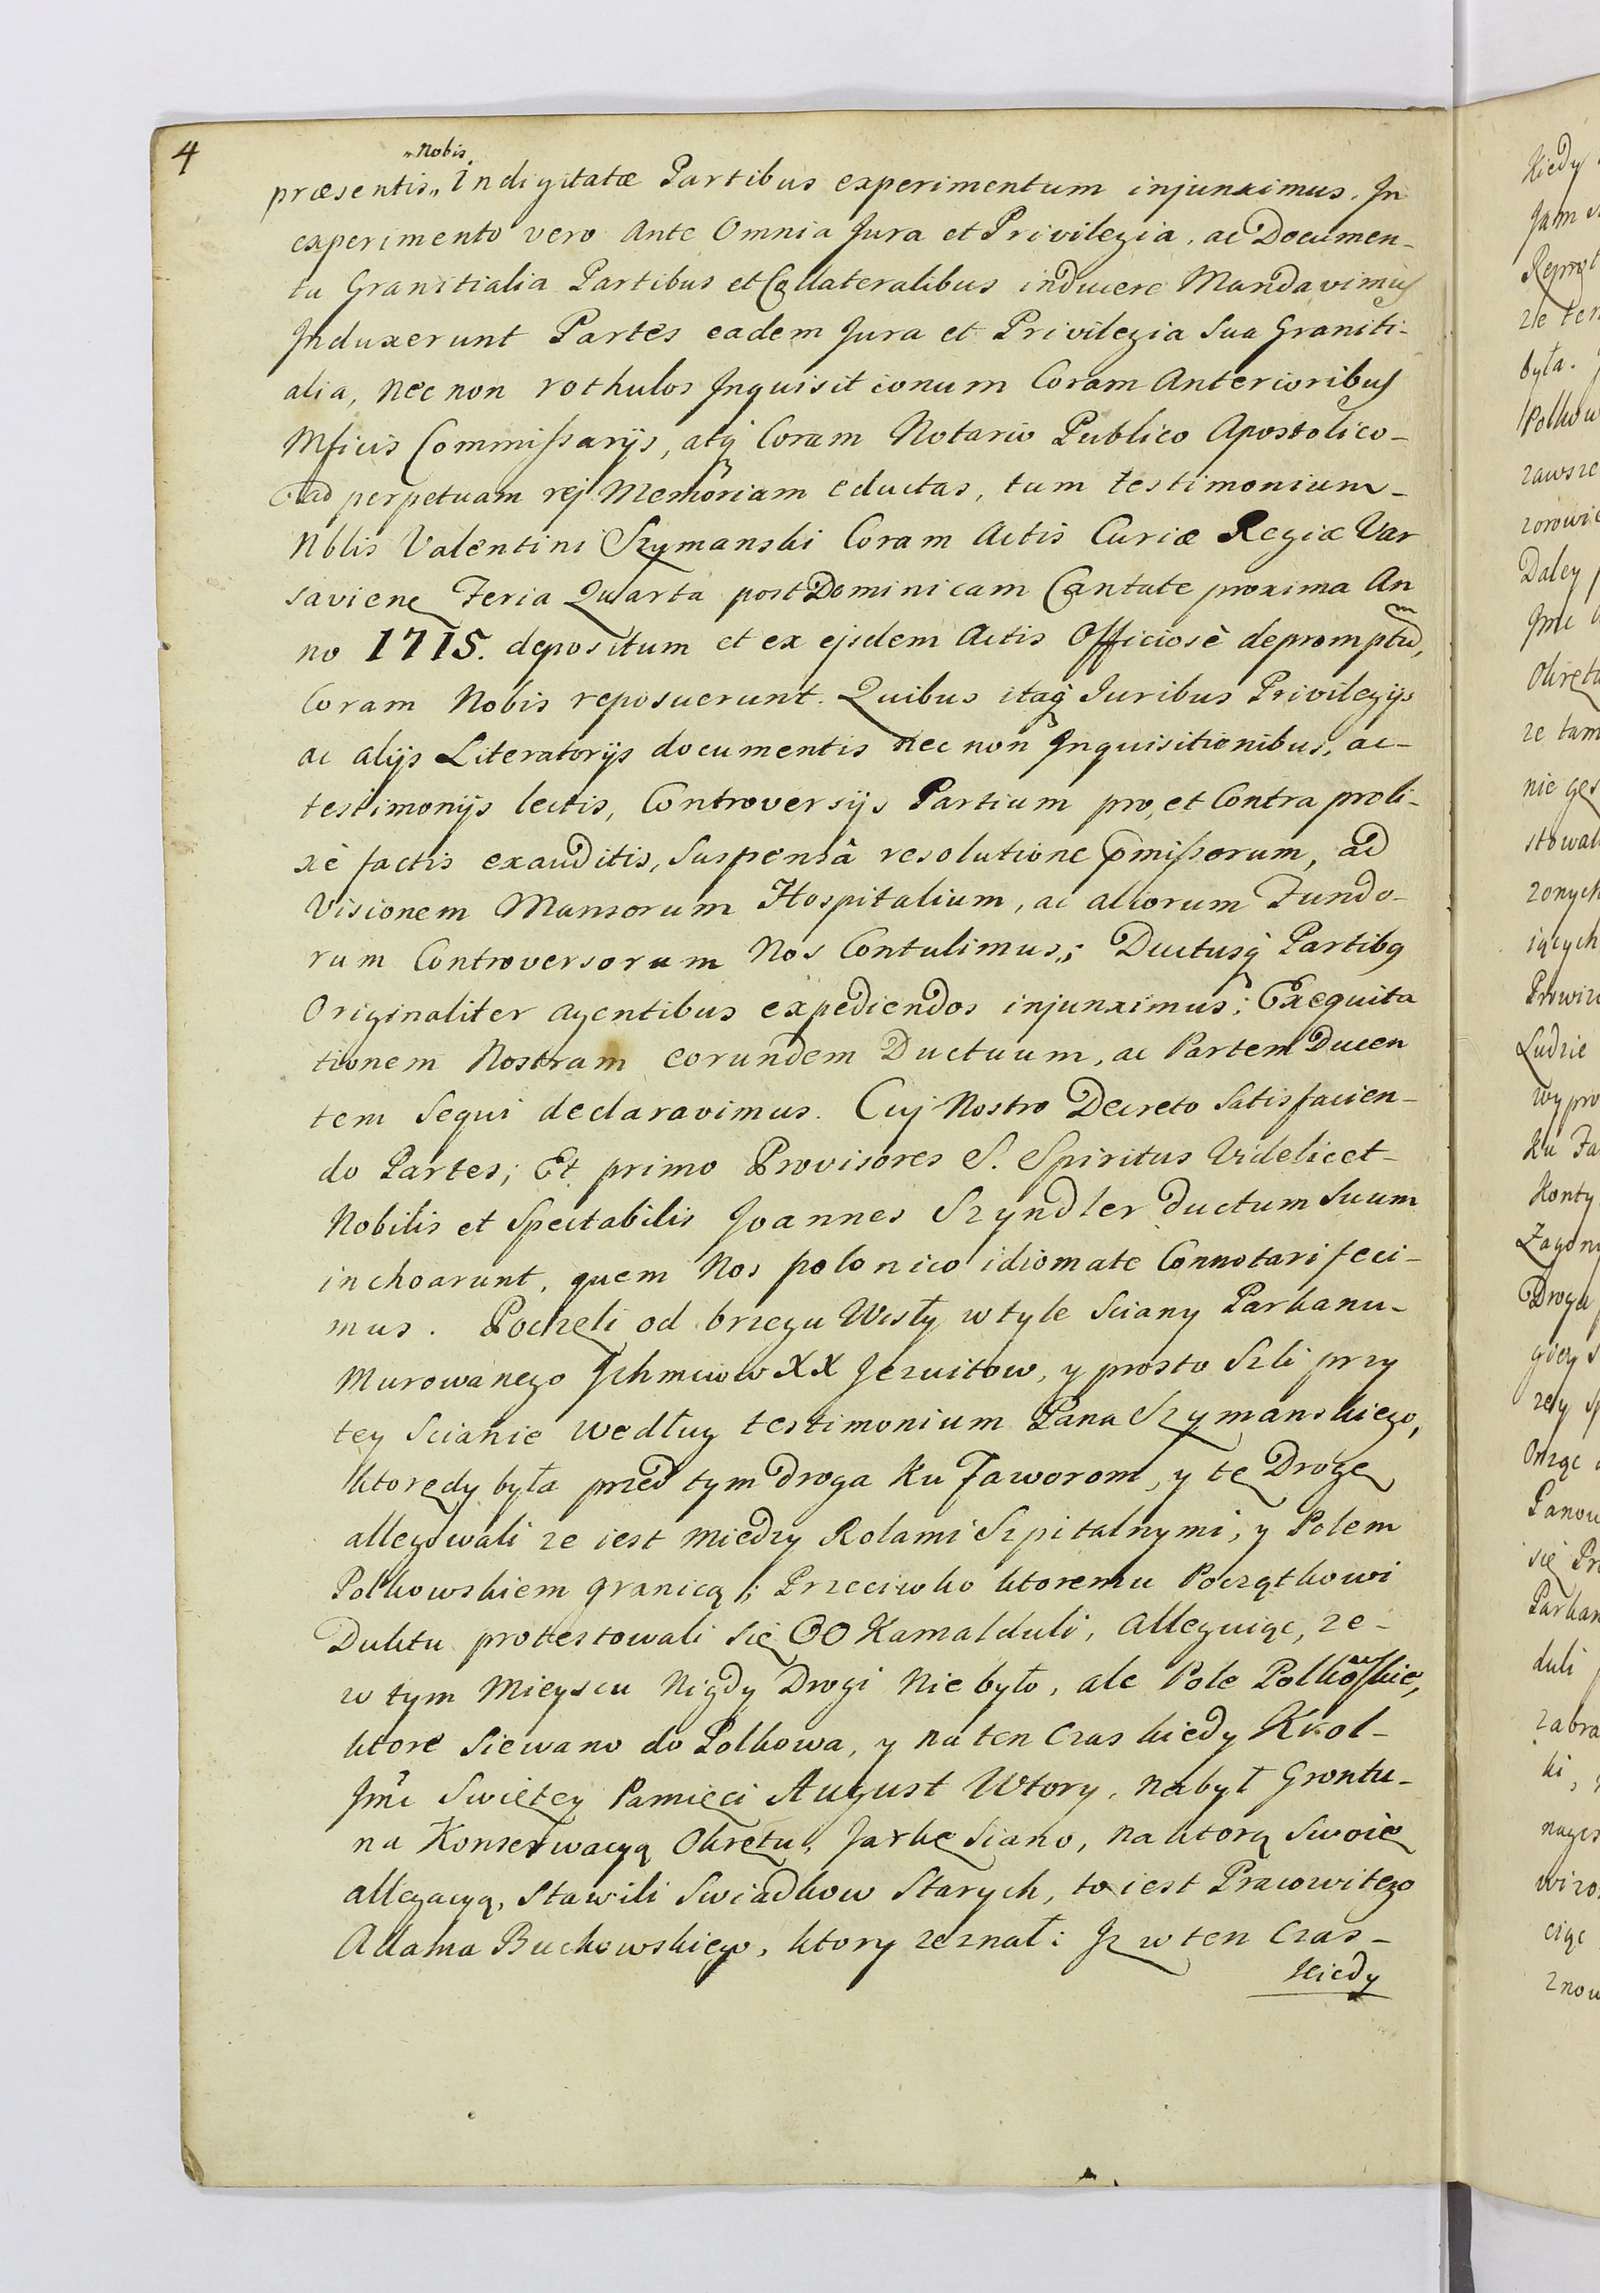 4
"Nobis
præsentis,, Indigitatæ Partibus experimentum injunximus. In
experimento vero Ante Omnia Jura et Privilegia, ac Documen-
ta Granitialia Partibus et Collateralibus inducere Mandavimus
Induxerunt Partes eadem Jura et Privilegia Sua Graniti-
alia, Nec non rothulos Inquisitionum Coram Anterioribus
Mficis Commissarijs, atq̃ Coram Notario Publico Apostolico-
ad perpetuam rej Memoriam eductas, tum testimonium-
Nblis Valentini Szymanski Coram Actis Curiæ Regiæ Var
saviene Feria Quarta post Dominicam Cantate proxima An
no 1715. depositum et ex ejsdem Actis Officiosè depromptum,
Coram Nobis reposuerunt. Quibus itaq̃ Juribus Privilegijs
ac alijs Literatorijs documentis nec non Inquisitionibus, ac-
testimonijs lectis, Controversijs Partium pro, et Contra proli-
xè factis exauditis, Suspensâ resolutione p̃missorum, ad
Visionem Mansorum Hospitalium, ac aliorum Fundo-
rum Controversorum Nos Contulimus; Ductusq̃ Partibq
Originaliter agentibus expediendos injunximus; Exequita
tionem Nostram eorundem Ductuum, ac Partem Ducen
tem Sequi declaravimus. Cuj Nostro Decreto Satisfacien-
do Partes; Et primo Provisores S. Spiritus Videlicet-
Nobilis et Spectabilis Joannes Szyndler ductum Suum
inchoarunt, quem Nos polonico idiomate Connotari feci-
mus. Poczeli od brzegu Wisły w tyle Sciany Parkanu-
Murowanego Jchmciow XX Jezuitow, y prosto Szli przy
tey Scianie według testimonium Pana Szymanskiego,
ktorędy była przed tym droga ku Faworom, y tę Drogę
allegowali ze iest miedzy Rolami Szpitalnymi, y Polem
Polkowskiem granicą; Przeciwko ktoremu Początkowi
Duktu protestowali się OO Kamalduli, Alleguiąc, ze-
w tym Mieyscu Nigdy Drogi Nie było, ale Pole Polkowskie,
ktore Siewano do Polkowa, y na ten Czas kiedy Krol-
Jmć Swiętey Pamięci August Wtory, nabył Grontu-
na Konserwacyą Okrętu, Jarkę Siano, na ktorą Swoię
allegacyą, Stawili Swiadkow Starych, to iest Pracowitego
Adama Buckowskiego, ktory zeznał: Jz w ten Czas-
Kiedy